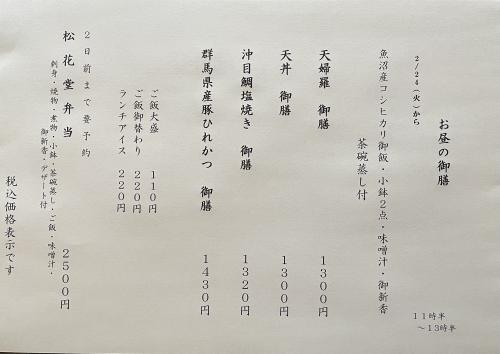 2/24(火)から
お昼の御膳
11時半
~13時半
魚沼産コシヒカリ御飯・小鉢2点・味噌汁・御新香
茶碗蒸し付
天婦羅 御膳 1300円
天丼 御膳 1300円
沖目鯛塩焼き 御膳 1320円
群馬県産豚ひれかつ 御膳 1430円
ご飯大盛 110円
ご飯御替わり 220円
ランチアイス 220円
2日前まで要予約
松花堂弁当 2500円
刺身・焼物・煮物・小鉢・茶碗蒸し・ご飯・味噌汁・
御新香・デザート付
税込価格表示です